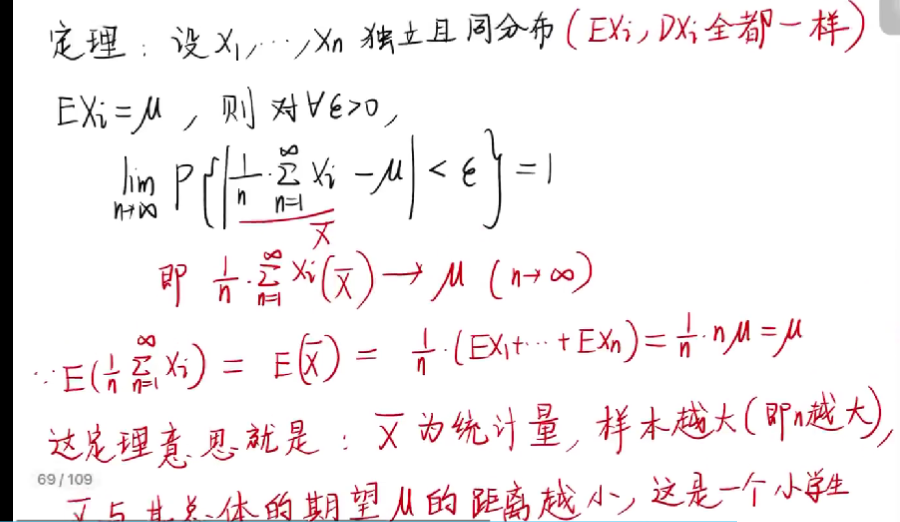 定理：设 X₁,…,Xn 独立且同分布（EXi，DXi全都一样）
EXi=μ，则对∀ε>0，
lim n→∞ P{|1/n·∑(n=1→∞) Xi −μ|<ε}=1
X̄
即 1/n·∑(n=1→∞) Xi(X̄)→μ (n→∞)
∵E(1/n ∑(n=1→∞) Xi) = E(X̄) = 1/n·(EX₁+…+EXn)=1/n·nμ=μ
这定理意思就是：X̄为统计量，样本越大(即n越大)，
69/109
X̄与其总体的期望μ的距离越小，这是一个小学生